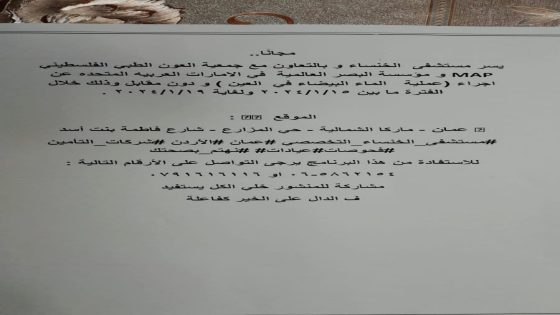 مجانا..
يسر مستشفى الخنساء و بالتعاون مع جمعية العون الطبي الفلسطيني
MAP و مؤسسة البصر العالمية في الامارات العربيه المتحده عن
اجراء (عملية الماء البيضاء في العين ) و دون مقابل وذلك خلال
الفترة ما بين ٢٠٢٤/١/١٥ ولغاية ٢٠٢٤/١/١٩ .
الموقع :
عمان - ماركا الشمالية - حي المزارع - شارع فاطمة بنت أسد
#مستشفى_الخنساء_التخصصي #عمان #الأردن #شركات_التامين
#فحوصات #عيادات #نهتم_بصحتك
للاستفادة من هذا البرنامج يرجى التواصل على الأرقام التالية :
٠٦-٥٨٦٢١٥٤ او ٠٧٩١٦١٦١١٦
مشاركة للمنشور خلي الكل يستفيد
ف الدال على الخير كفاعلة